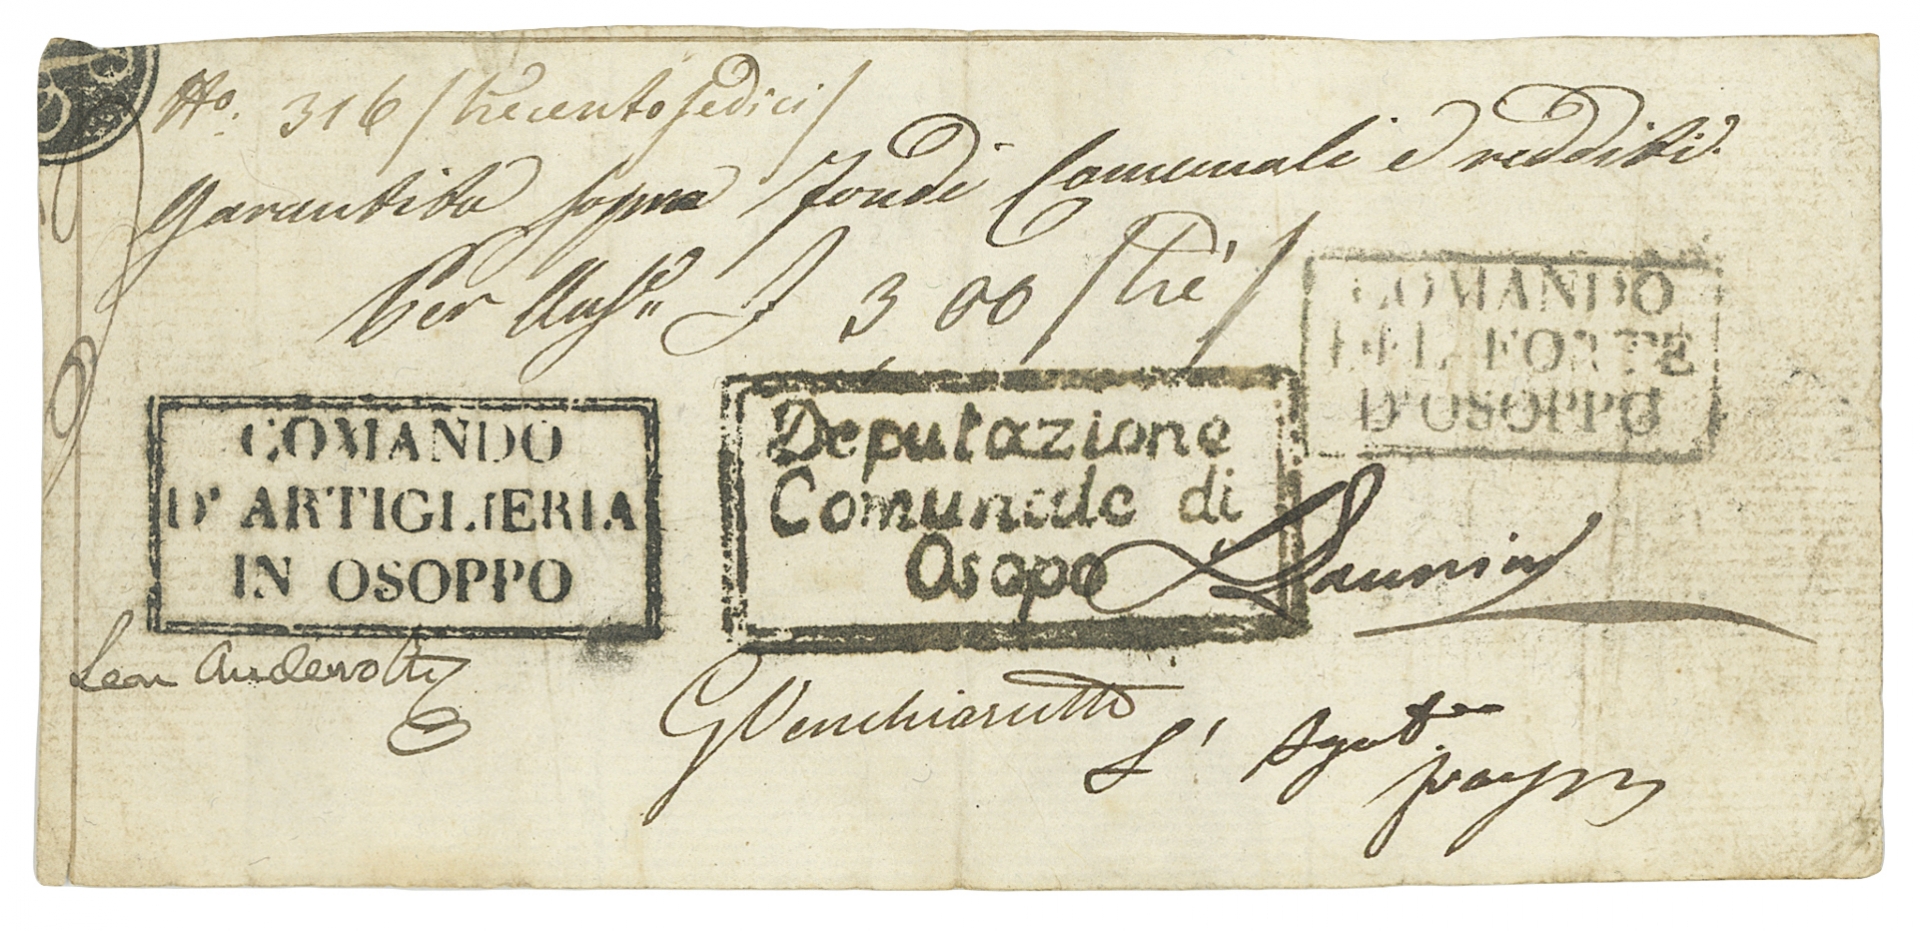 No. 316 / trecento sedici /
Garantita sopra fondi Comunali e redditi.
Per Aus.e £ 3 00 / tre /
COMANDO
DEL FORTE
D'OSOPPO
COMANDO
D'ARTIGLIERIA
IN OSOPPO
Deputazione
Comunale di
Osopo
Leon Andervolti
G Venchiarutti
L'